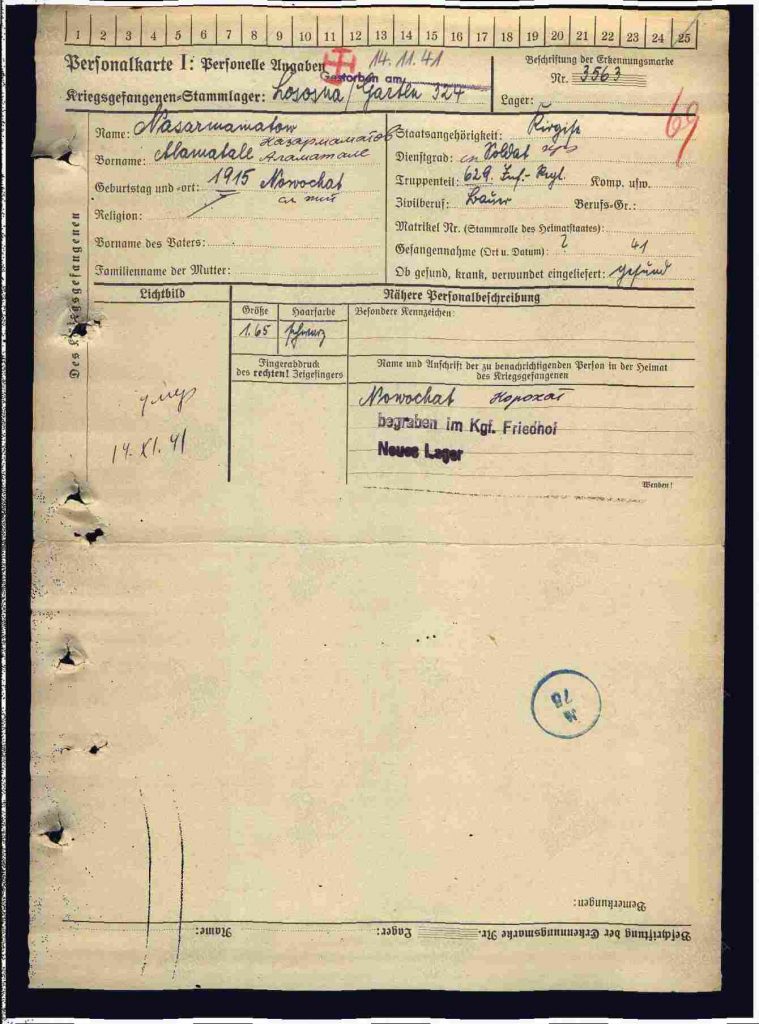 1 2 3 4 5 6 7 8 9 10 11 12 13 14 15 16 17 18 19 20 21 22 23 24 25
Personalkarte I: Personelle Angaben
Gestorben am 14.11.41
Kriegsgefangenen-Stammlager: Lososna/Garten 324
Beschriftung der Erkennungsmarke
Nr. 3563
Lager:
69
Des Kriegsgefangenen
Name: Nasarmamatow Назармаматов
Vorname: Alamatale Агаматале
Geburtstag und -ort: 1915 Nowochat
Religion:
Vorname des Vaters:
Familienname der Mutter:
Staatsangehörigkeit: Kirgise
Dienstgrad: Soldat
Truppenteil: 629. Inf.-Rgt. Komp. usw.
Zivilberuf: Bauer Berufs-Gr.:
Matrikel Nr. (Stammrolle des Heimatstaates):
Gefangennahme (Ort u. Datum): ? 41
Ob gesund, krank, verwundet eingeliefert: gesund
Lichtbild
умер
14. XI. 41
Nähere Personalbeschreibung
Größe Haarfarbe Besondere Kennzeichen:
1.65 schwarz
Fingerabdruck
des rechten! Zeigefingers
Name und Anschrift der zu benachrichtigenden Person in der Heimat
des Kriegsgefangenen
Nowochat
begraben im Kgf. Friedhof
Neues Lager
Wenden!
M
76
Bemerkungen:
Beschriftung der Erkennungsmarke Nr. Lager: Name: